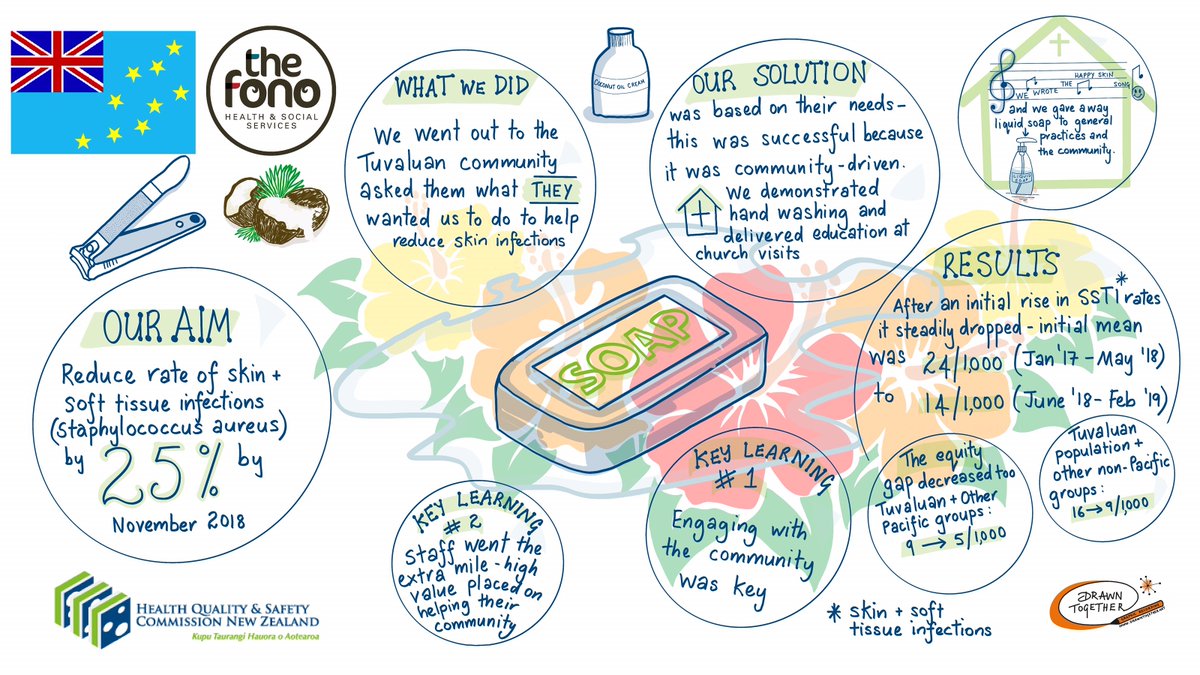 the
fono
HEALTH & SOCIAL
SERVICES
WHAT WE DID
We went out to the
Tuvaluan community
asked them what THEY
wanted us to do to help
reduce skin infections
COCONUT OIL CREAM
OUR SOLUTION
was based on their needs-
this was successful because
it was community-driven.
We demonstrated
hand washing and
delivered education at
church visits
HAPPY SKIN
WE WROTE THE SONG
and we gave away
liquid soap to general
practices and
the community.
OUR AIM
Reduce rate of skin +
soft tissue infections
(Staphylococcus aureus)
by 25% by
November 2018
SOAP
RESULTS
After an initial rise in SSTI* rates
it steadily dropped - initial mean
was 24/1,000 (Jan '17 - May '18)
to 14/1,000 (June '18 - Feb '19)
The equity
gap decreased too
Tuvaluan + Other
Pacific groups:
9 → 5/1,000
Tuvaluan
population +
other non-Pacific
groups:
16 → 9/1,000
KEY LEARNING
# 1
Engaging with
the community
was key
KEY LEARNING
# 2
Staff went the
extra mile - high
value placed on
helping their
community
* skin + soft
tissue infections
HEALTH QUALITY & SAFETY
COMMISSION NEW ZEALAND
Kupu Taurangi Hauora o Aotearoa
DRAWN
TOGETHER